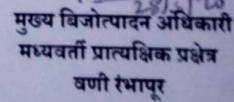 मुख्य बिजोत्पादन अधिकारी
मध्यवर्ती प्रात्यक्षिक प्रक्षेत्र
वणी रंभापूर